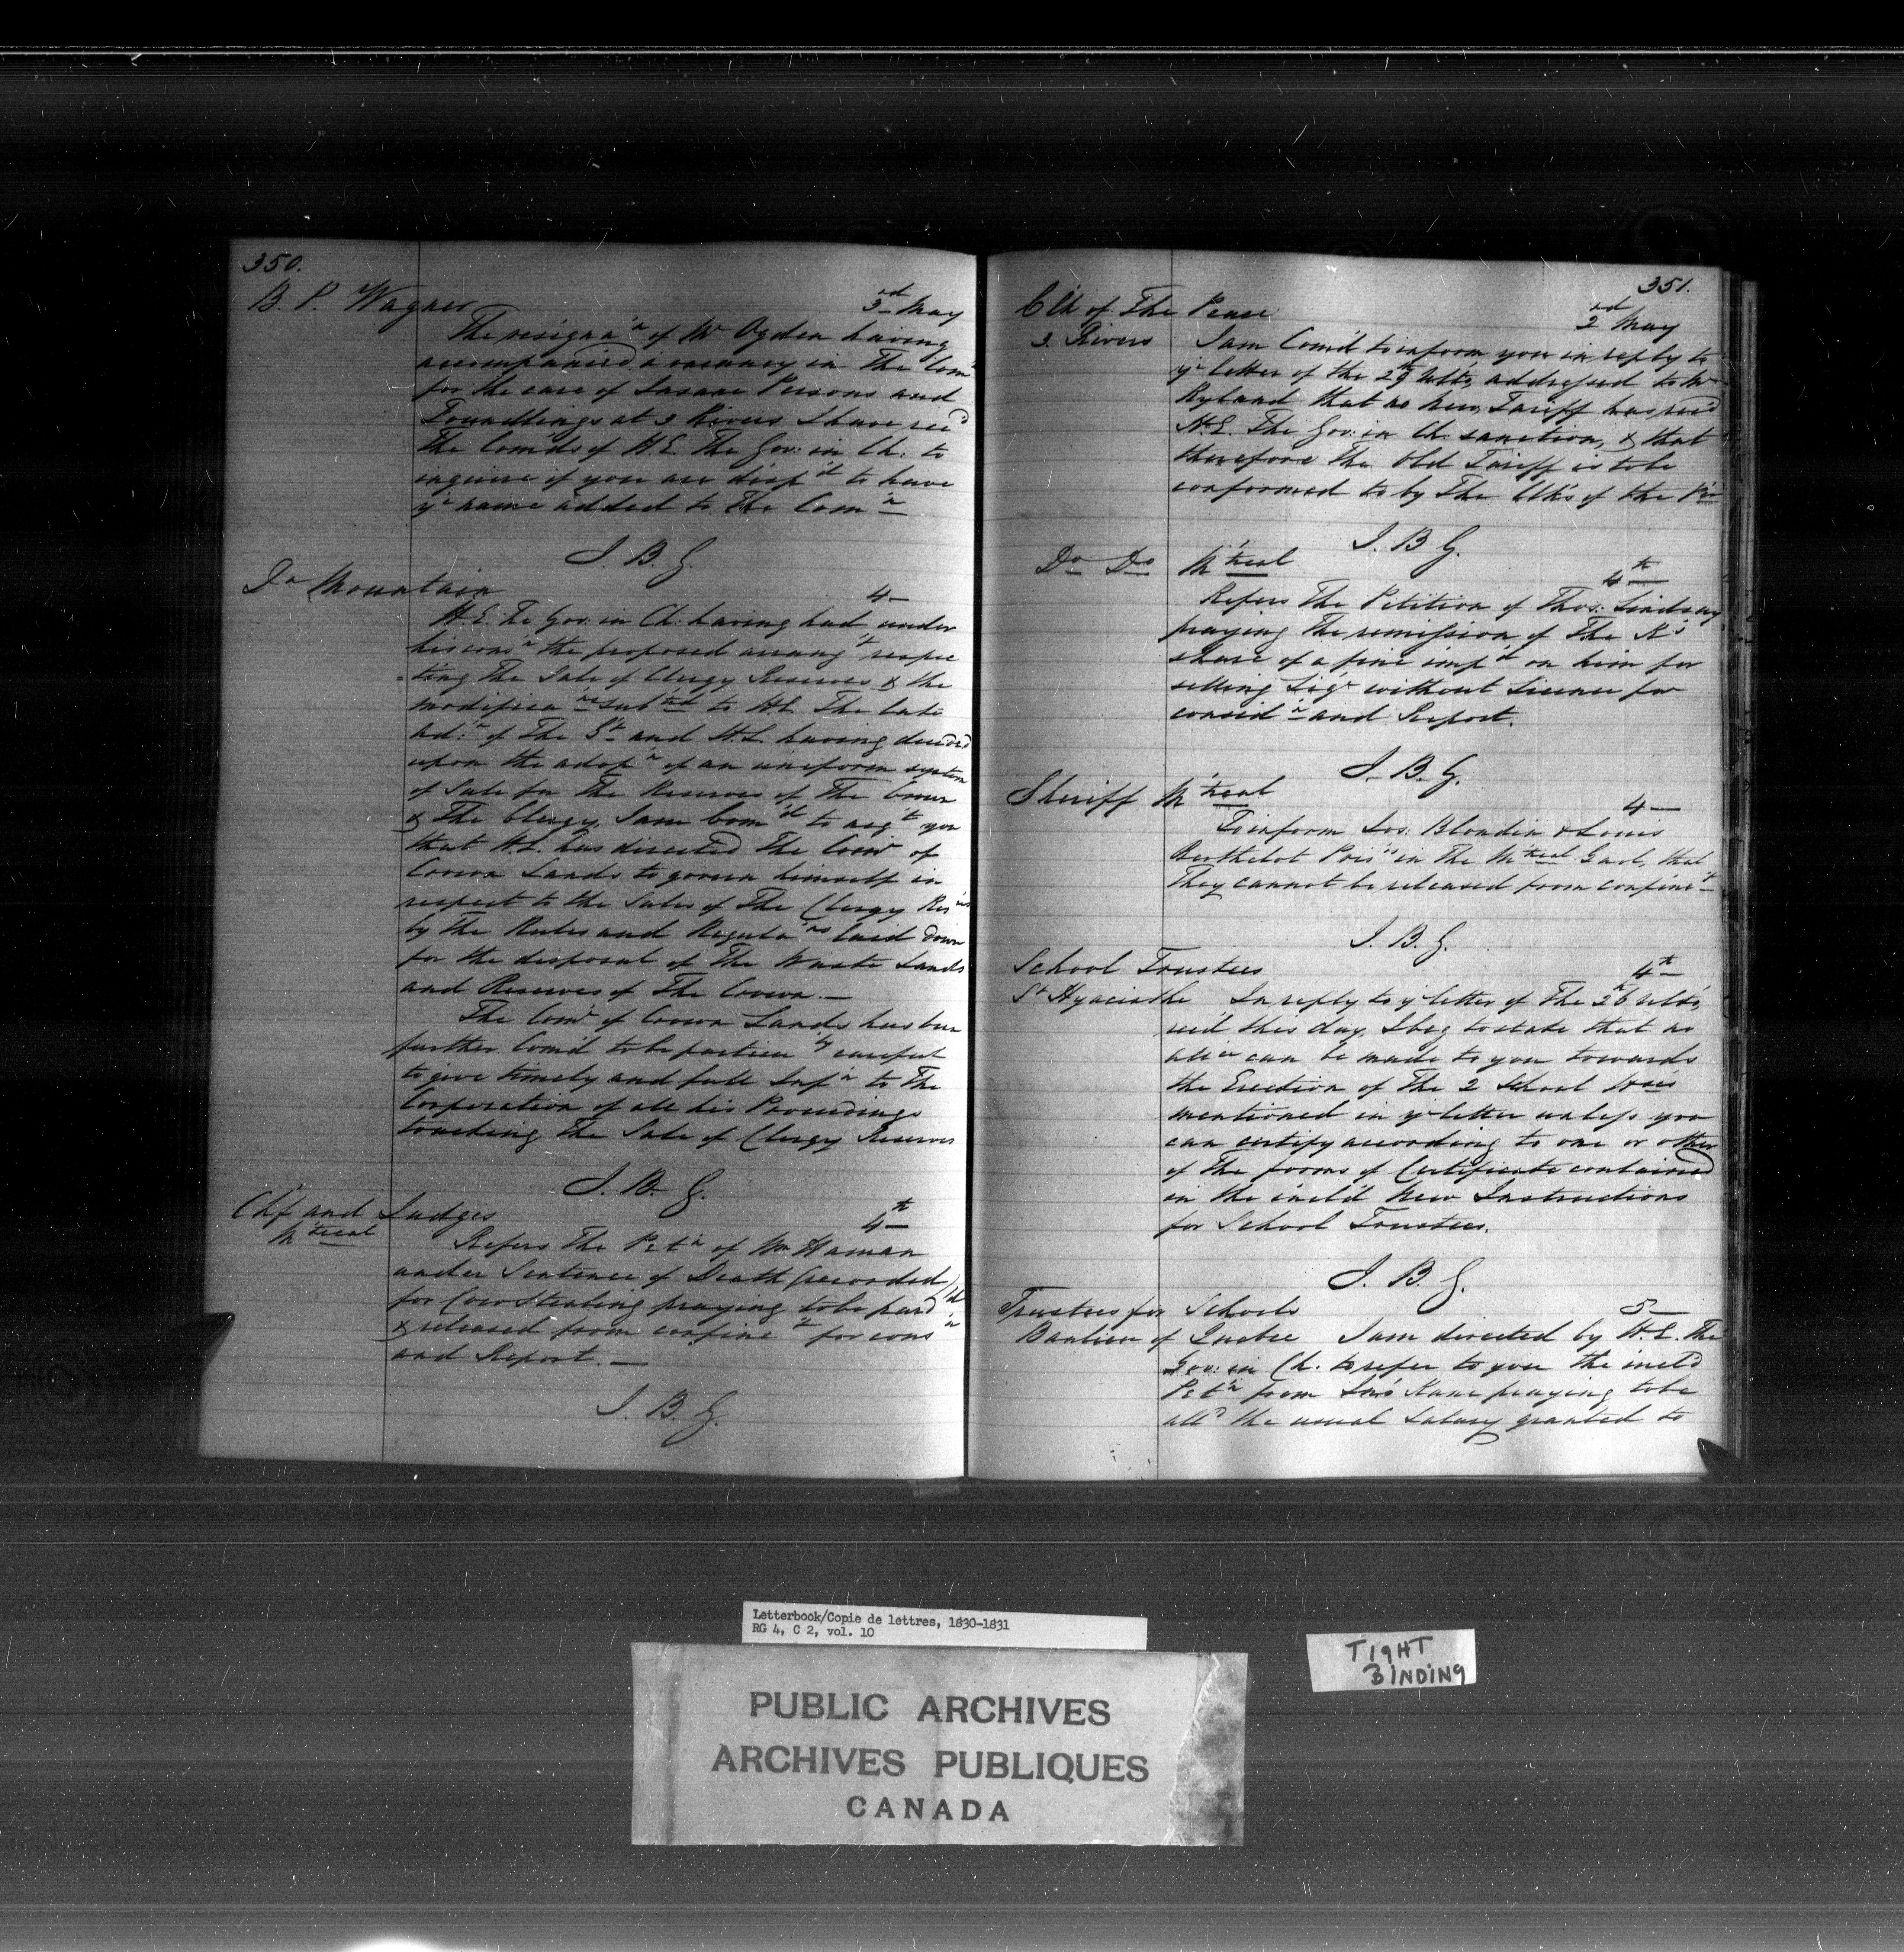 350.
B. P. Wagner 3rd May
The resigna'n of Mr Ogden having
accompanied a vacancy in The Com'n
for the care of Insane Persons and
Foundlings at 3 Rivers I have rec'd
the Com'ds of H.E. The Gov: in Ch: to
inquire if you are disp'd to have
yr name added to The Com'n
J. B. G.
Do Mountain 4-
H.E. The Gov: in Ch: having had under
his cons'n the proposed arrang't respec
-ting The Sale of Clergy Reserves & the
modifica'ns sub'ted to H.E. The late
Ad:'n of The G't and H.E. having decided
upon the adop'n of an uniform system
of Sale for The Reserves of The Crown
& The Clergy, I am Com'd to acq't you
that H.E. has directed The Com'r of
Crown Lands to govern himself in
respect to the Sales of The Clergy Res'ves
by The Rules and Regula'ns laid down
for the disposal of The Waste Lands
and Reserves of The Crown.—
The Com'r of Crown Lands has been
further Com'd to be particu'ly careful
to give timely and full Inf'n to The
Corporation of all his Proceedings
touching The Sale of Clergy Reserves
J. B. G.
Ch'f and Judges 4th
M'treal Refers The Pet'n of Wm Haman
under Sentence of Death (recorded)
for Cow Stealing praying to be pard'd
& released from confine't for cons'n
and Report.—
J. B. G.
351.
Clk of The Peace 2nd May
3. Rivers I am Com'd to inform you in reply to
yr letter of the 29th Ulto, addressed to Mr
Ryland that no new Tariff has rec'd
H.E. The Gov: in Ch. sanction, & that
therefore The Old Tariff is to be
conformed to by The Clk's of the Pce
J. B. G.
Do Do M'treal 4th
Refers The Petition of Thos: Lindsay
praying The remission of The K's
share of a fine imp'd on him for
selling Liq'r without License for
consid'n and Report.
J. B. G.
Sheriff M'treal 4—
To inform Jos: Blondin & Louis
Berthelot Pris'rs in The M'treal Gaol, that
They cannot be released from confine't
J. B. G.
School Trustees 4th
St Hyacinthe In reply to yr letter of The 26 ulto,
rec'd this day, I beg to state that no
can be made to you towards
the Erection of The 2 School Ho'es
mentioned in yr letter unless you
can certify according to one or other
of The forms of Certificate contained
in the incl'd New Instructions
for School Trustees.
J. B. G.
Trustees for Schools 5—
Banlieu of Quebec I am directed by H.E. The
Gov: in Ch. to refer to you the incl'd
Pet'n from Jas Kane praying to be
all'd the usual Salary granted to
Letterbook/Copie de lettres, 1830-1831
RG 4, C 2, vol. 10
TIGHT
BINDING
PUBLIC ARCHIVES
ARCHIVES PUBLIQUES
CANADA